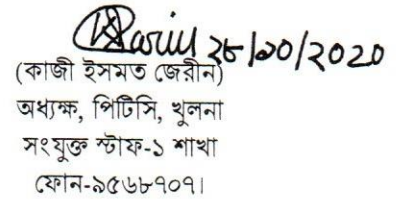 ২৮/১০/২০২০
(কাজী ইসমত জেরীন)
অধ্যক্ষ, পিটিসি, খুলনা
সংযুক্ত স্টাফ-১ শাখা
ফোন-৯৫৬৮৭০৭।